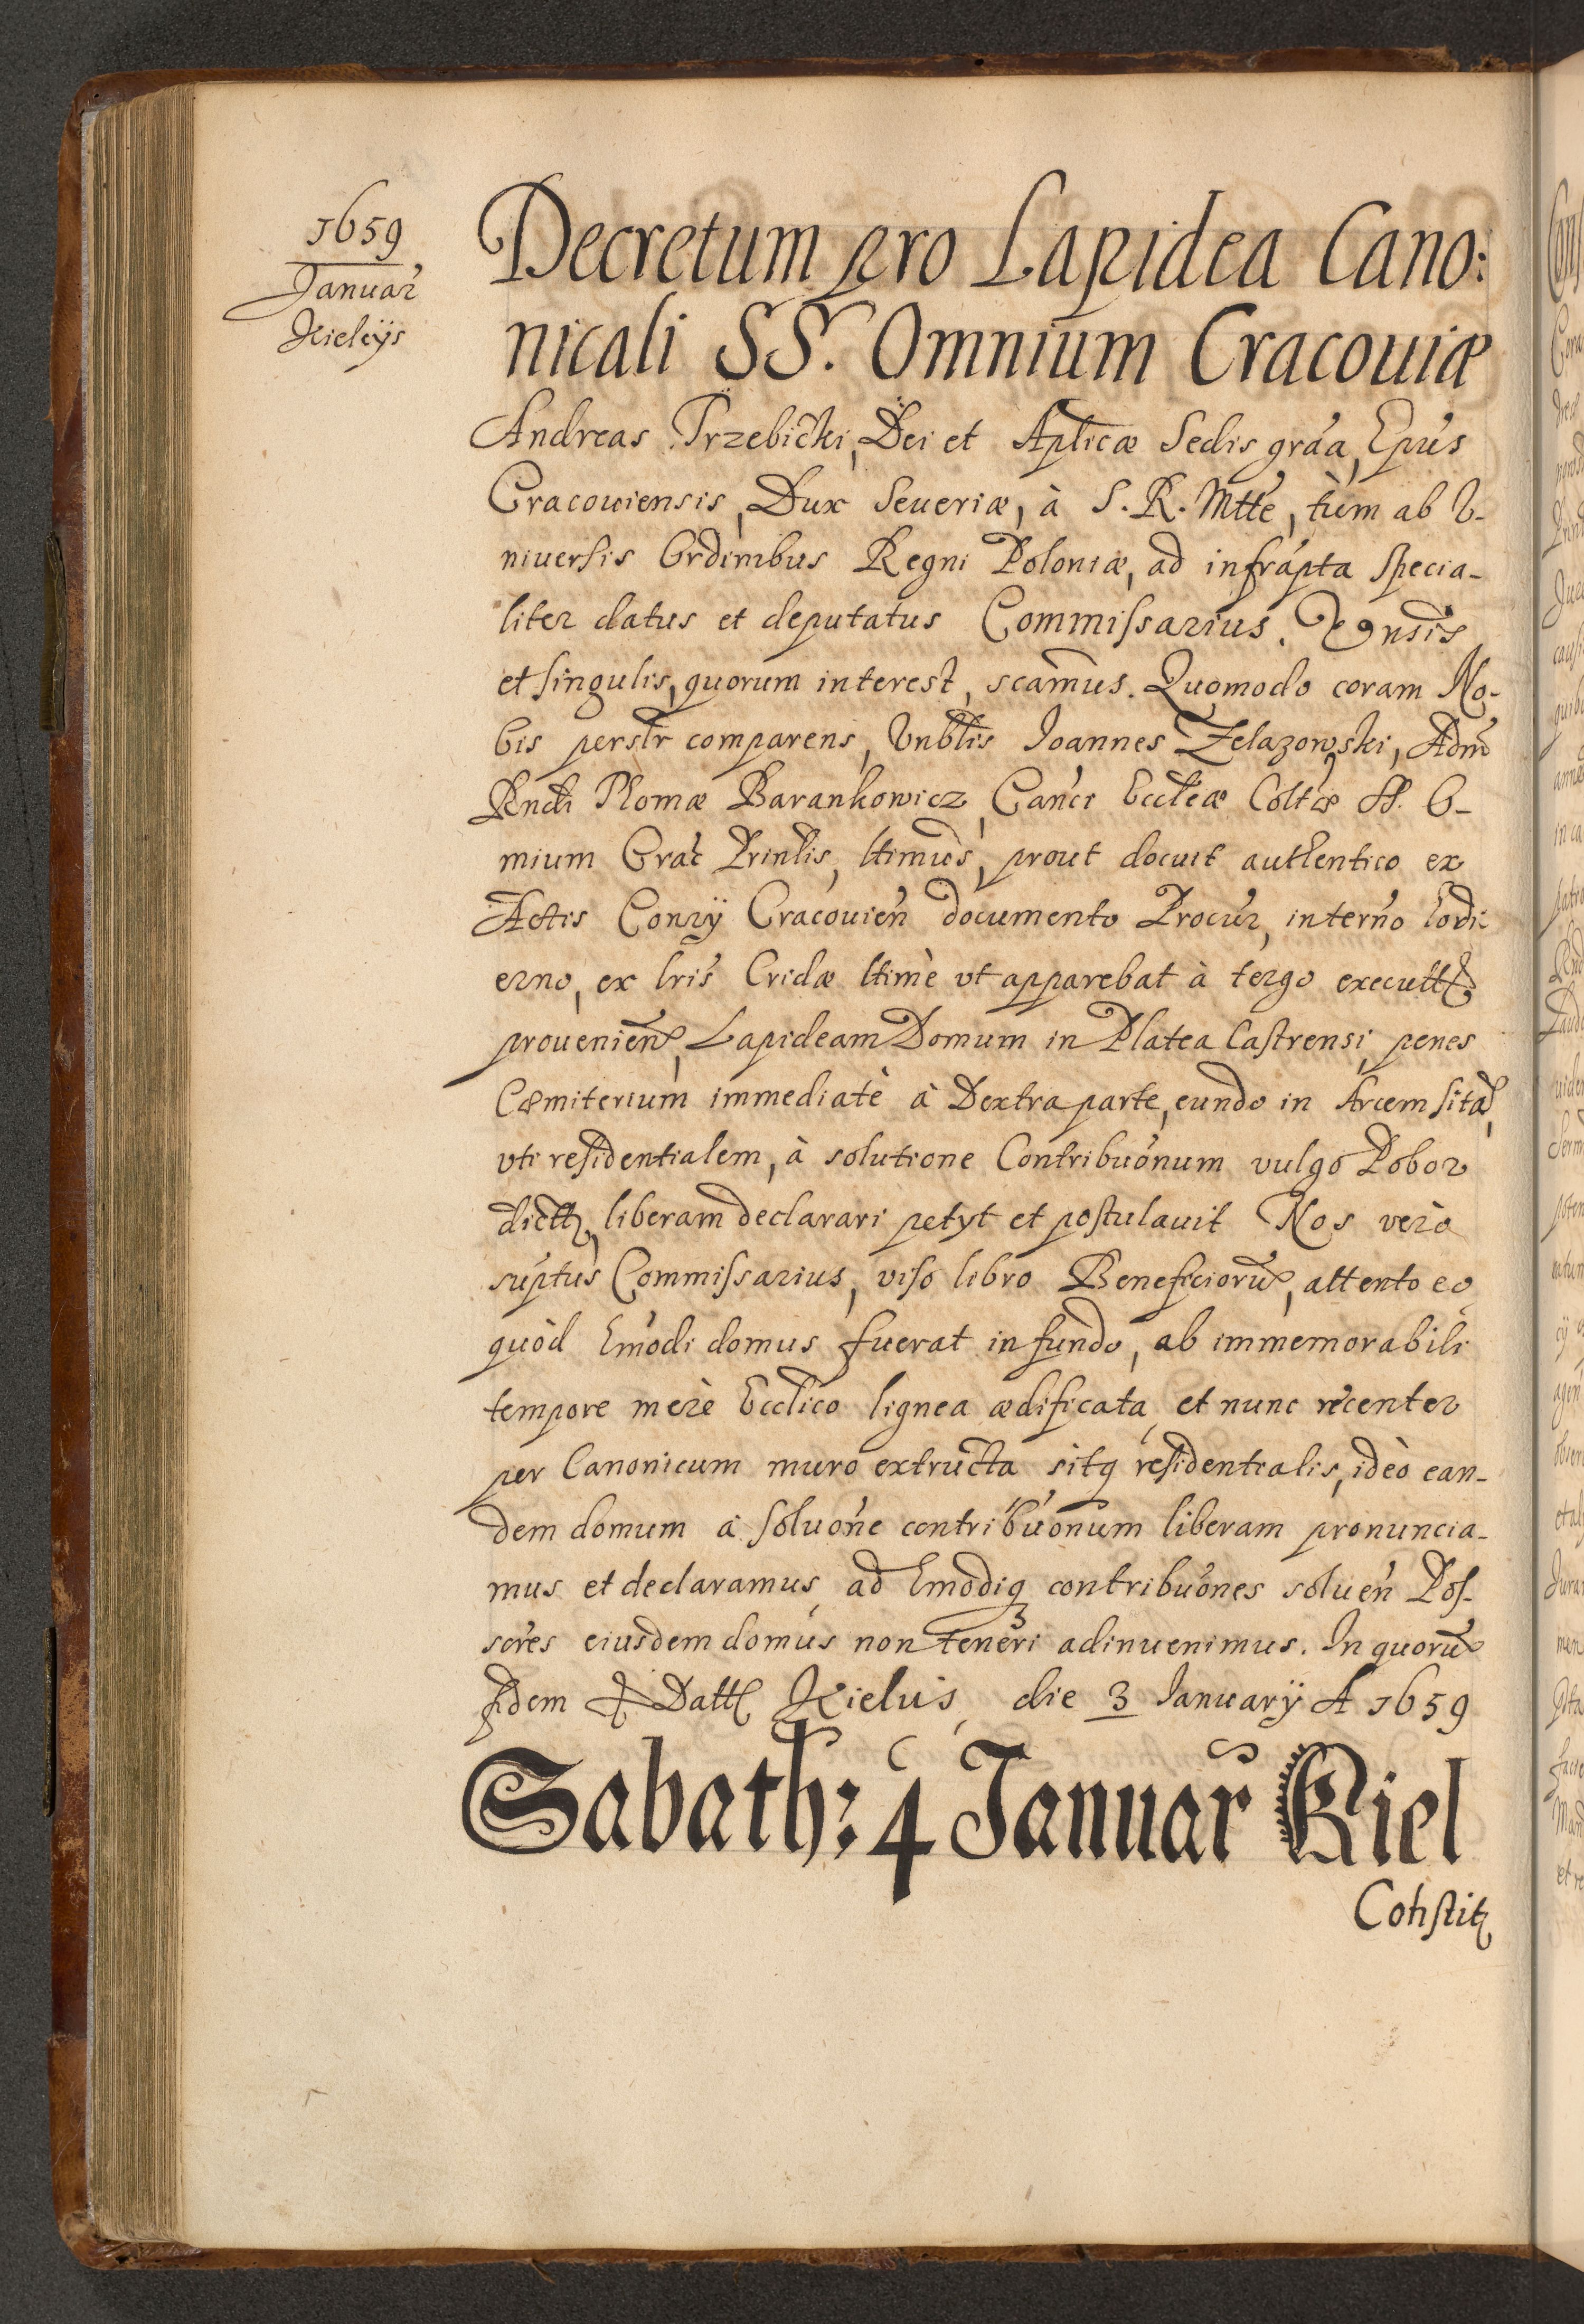 1659
Januar
Kielÿs
Decretum pro Lapidea Cano:
nicali SS. Omnium Cracouiæ
Andreas Trzebicki, Dei et Aplicæ Sedis graa, Epus
Cracouiensis, Dux Seueriæ, à S. R. Mtte, tùm ab V-
niuersis Ordinibus Regni Poloniæ, ad infrapta specia-
liter datus et deputatus Commissarius.
et singulis, quorum interest, scamus. Quomodo coram No-
bis perslr comparens, Vnblis Joannes Zelazowski, Adm
Rndi Thomæ Barankowicz, Canci Eccleæ Coltæ SS. O-
mnium Crac Prinlis, ltimus, prout docuit authentico ex
Actis Conrÿ Cracouien documento Procur, in terno hodi
erno, ex lris Cridæ ltimè vt apparebat à tergo execut
prouenien, Lapideam Domum in Platea Castrensi, penes
Cœmiterium immediatè à Dextra parte, eundo in Arcem sita,
vti residentialem, à solutione Contribuonum vulgo Pobor
dictt, liberam declarari petyt et postulauit Nos verò
suptus Commissarius, viso libro Beneficioru, attento eo
quòd hmodi domus fuerat in fundo, ab immemorabili
tempore merè Ecclico lignea ædificata, et nunc recenter
per Canonicum muro extructa sitq residentialis, ideò ean-
dem domum à soluone contribuonum liberam pronuncia-
mus et declaramus, ad hmodiq contribuones soluen Pos-
sores eiusdem domus non teneri adinuenimus. In quoru
fidem & Datt Kielus, die 3 Januarÿ A 1659
Sabath: 4 Januar Kiel
Constit